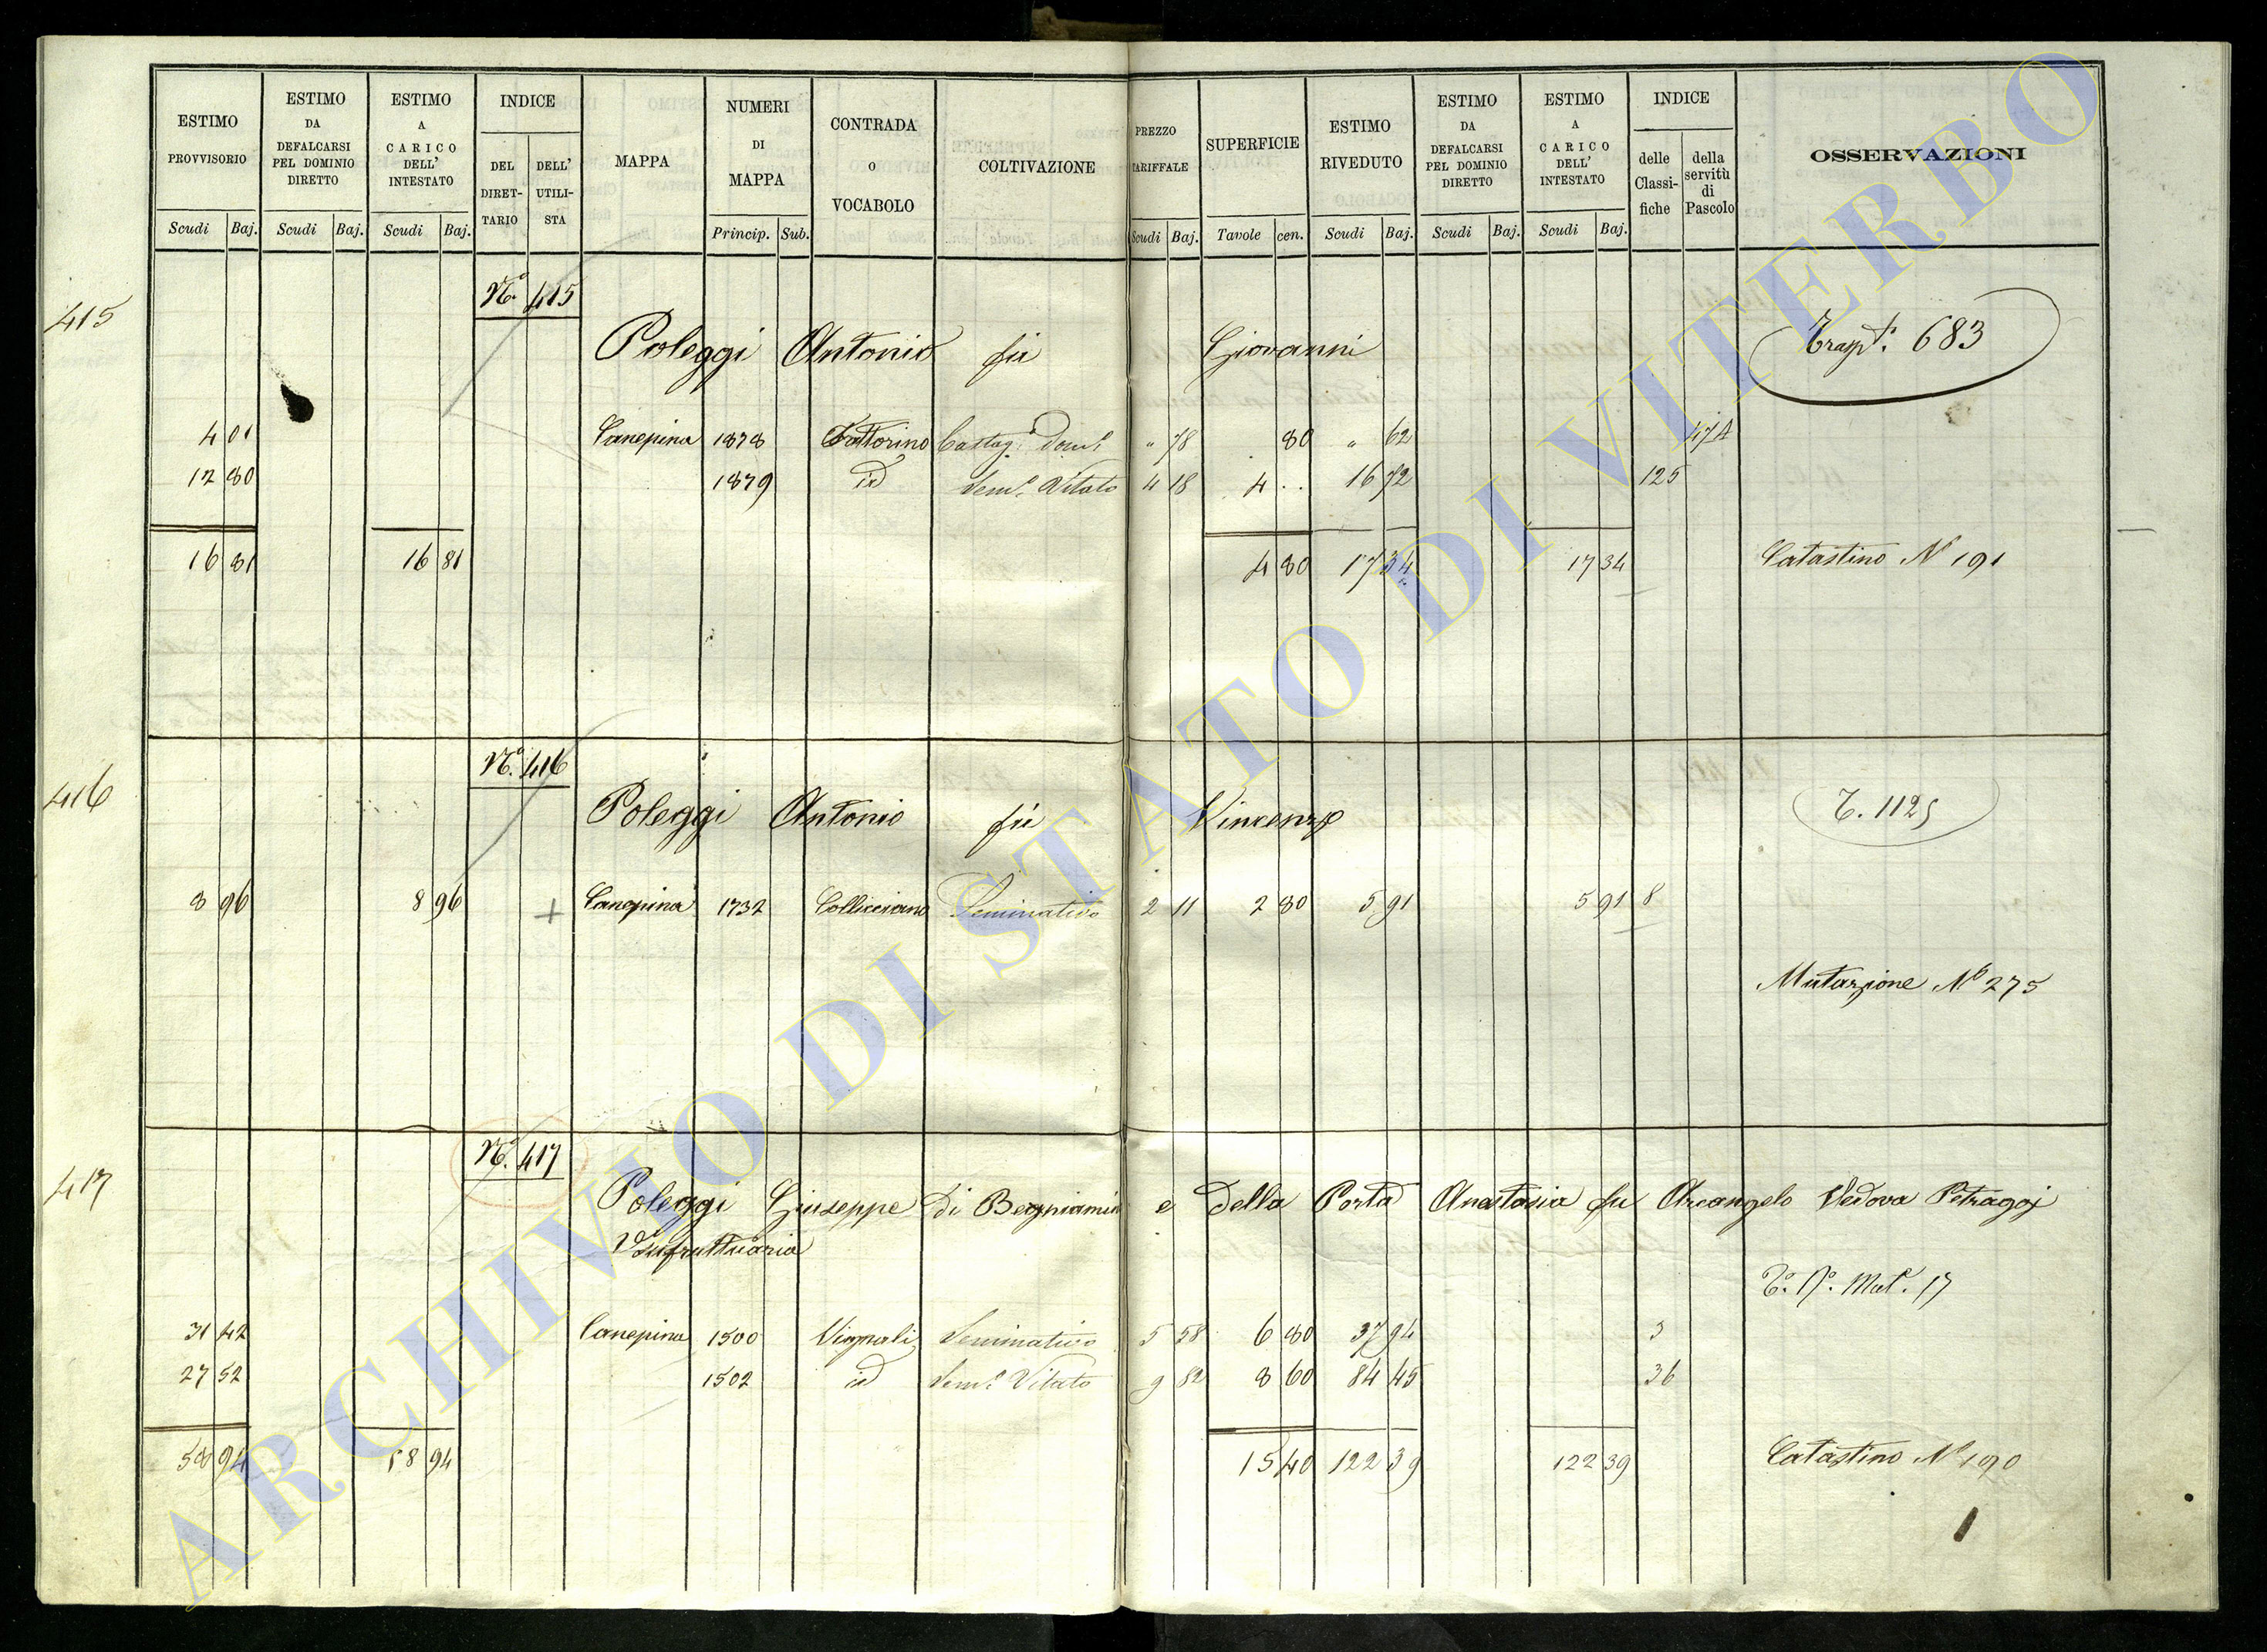 ESTIMO PROVVISORIO Scudi Baj.
ESTIMO DA DEFALCARSI PEL DOMINIO DIRETTO Scudi Baj.
ESTIMO A CARICO DELL' INTESTATO Scudi Baj.
INDICE DEL DIRETTARIO DELL' UTILISTA
MAPPA
NUMERI DI MAPPA Princip. Sub.
CONTRADA o VOCABOLO
COLTIVAZIONE
PREZZO TARIFFALE Scudi Baj.
SUPERFICIE Tavole cen.
ESTIMO RIVEDUTO Scudi Baj.
ESTIMO DA DEFALCARSI PEL DOMINIO DIRETTO Scudi Baj.
ESTIMO A CARICO DELL' INTESTATO Scudi Baj.
INDICE delle Classifiche della servitù di Pascolo
OSSERVAZIONI
415 N.º 415
Poleggi Antonio fu Giovanni Trasp.to 683
4 01 Canepina 1878 Fattorino Castag.o Dom.e " 78 80 " 62 174
12 80 1879 id Sem.o Vitato 4 18 4 . . 16 72 125
16 81 16 81 4 80 17 34 17 34 Catastino N 191
416 N.º 416
Poleggi Antonio fu Vincenzo T. 1125
8 96 8 96 + Canepina 1732 Colliccirano Seminativo 2 11 2 80 5 91 5 91 8
Mutazione Nº 275
417 N.º 417
Poleggi Giuseppe di Begniamin e Della Porta Anastasia fu Arcangelo Vedova Petraggi
Usufruttuaria
31 42 Canepina 1500 Vignali Seminativo 5 58 6 80 37 94 3
27 52 1502 id Sem.o Vitato 9 82 8 60 84 45 36
58 94 58 94 15 40 122 39 122 39 Catastino Nº 190
ARCHIVIO DI STATO DI VITERBO